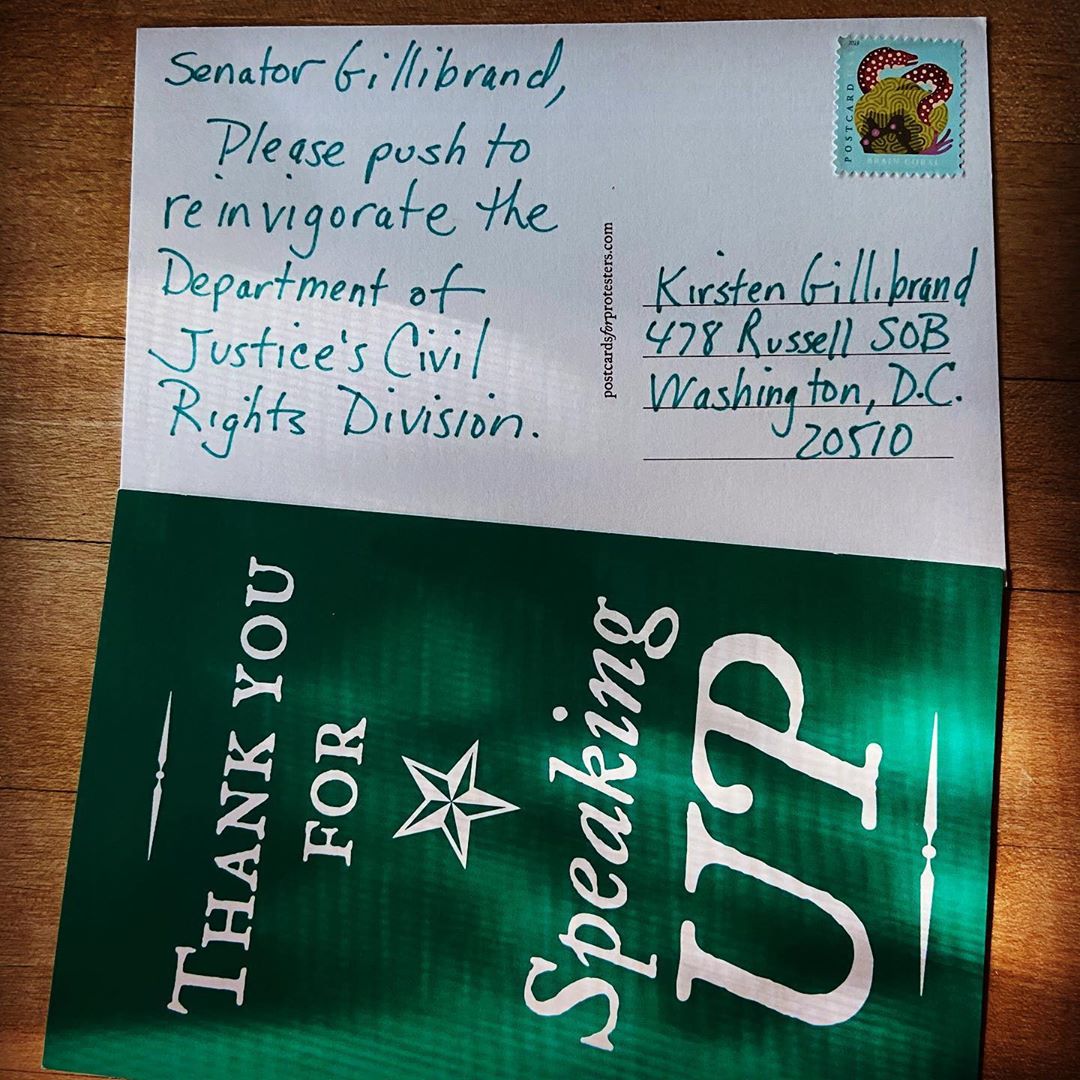 Senator Gillibrand,
Please push to
reinvigorate the
Department of
Justice's Civil
Rights Division.
postcardsforprotesters.com
2019
POSTCARD
BRAIN CORAL
Kirsten Gillibrand
478 Russell SOB
Washington, D.C.
20510
THANK YOU
FOR
Speaking
UP